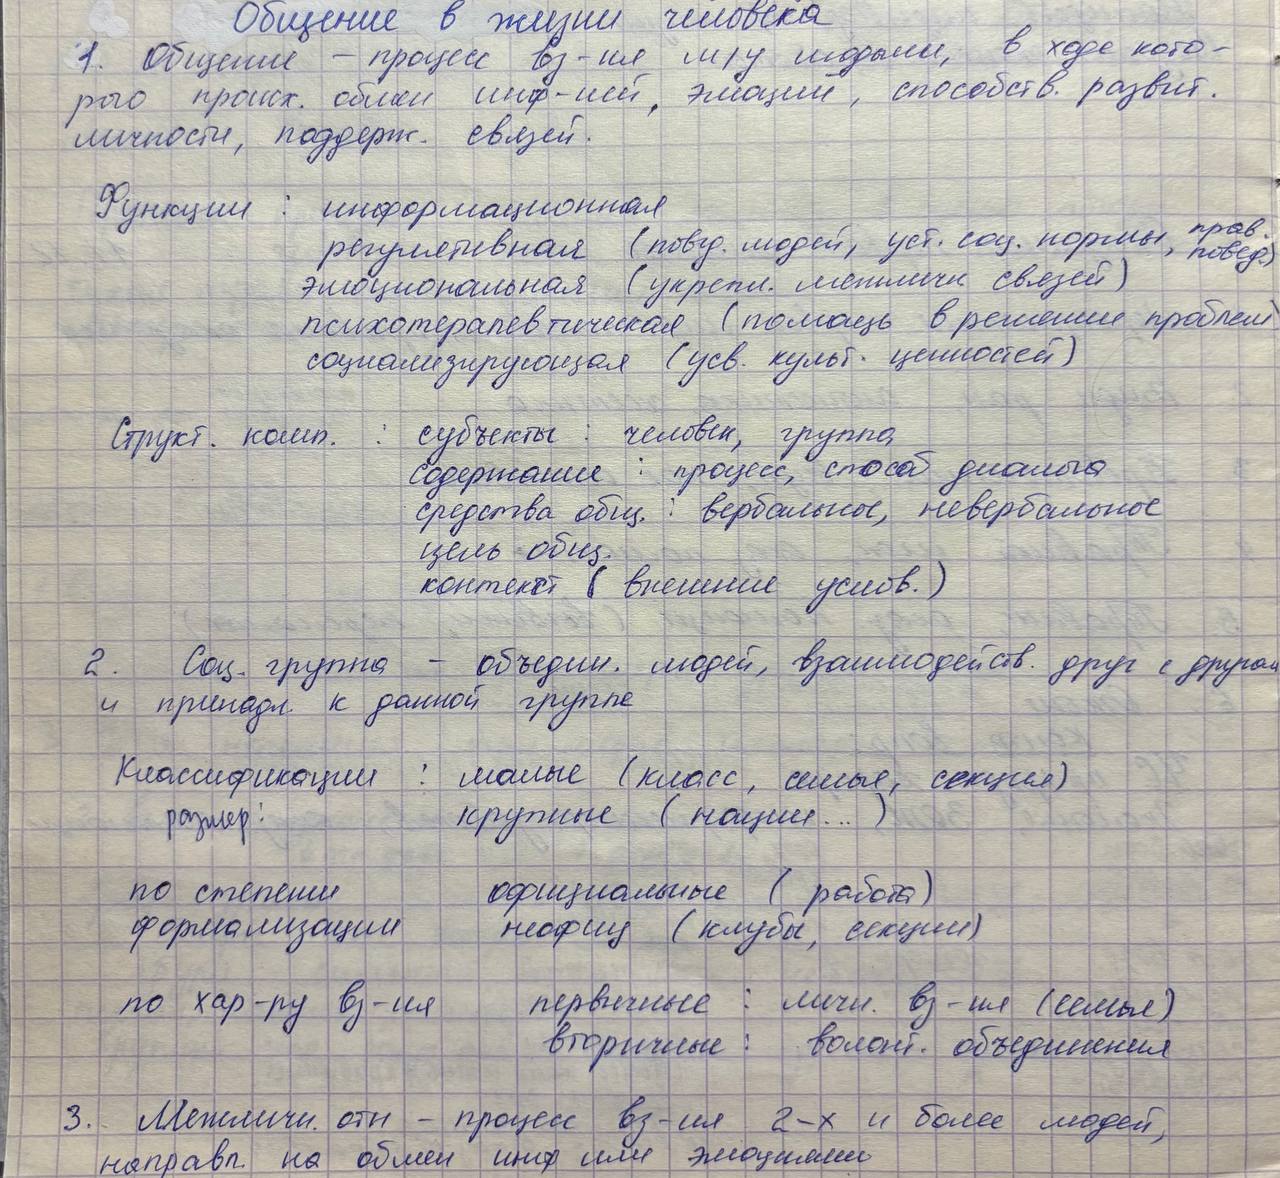 Общение в жизни человека
1. Общение – процесс вз-ия м/у людьми, в ходе кото-
рого происх. обмен инф-ией, эмоций, способств. развит.
личности, поддерж. связей.
Функции : информационная
регулятивная (повед. людей, уст. соц. нормы, прав. повед.)
эмоциональная (укрепл. межличн связей)
психотерапевтическая (помощь в решении проблем)
социализирующая (усв. культ. ценностей)
Структ. комп. : субъекты : человек, группа
содержание : процесс, способ диалога
средства общ. : вербальное, невербальное
цель общ.
контекст ( внешние услов.)
2. Соц. группа – объедин. людей, взаимодейств. друг с другом
и принадл. к данной группе
Классификации : малые (класс, семья, секция)
размер: крупные (нации...)
по степени официальные ( работа)
формализации неофиц (клубы, секции)
по хар-ру вз-ия первичные : личн. вз-ия (семья)
вторичные : волонт. объединения
3. Межличн. отн – процесс вз-ия 2-х и более людей,
направл. на обмен инф или эмоциями